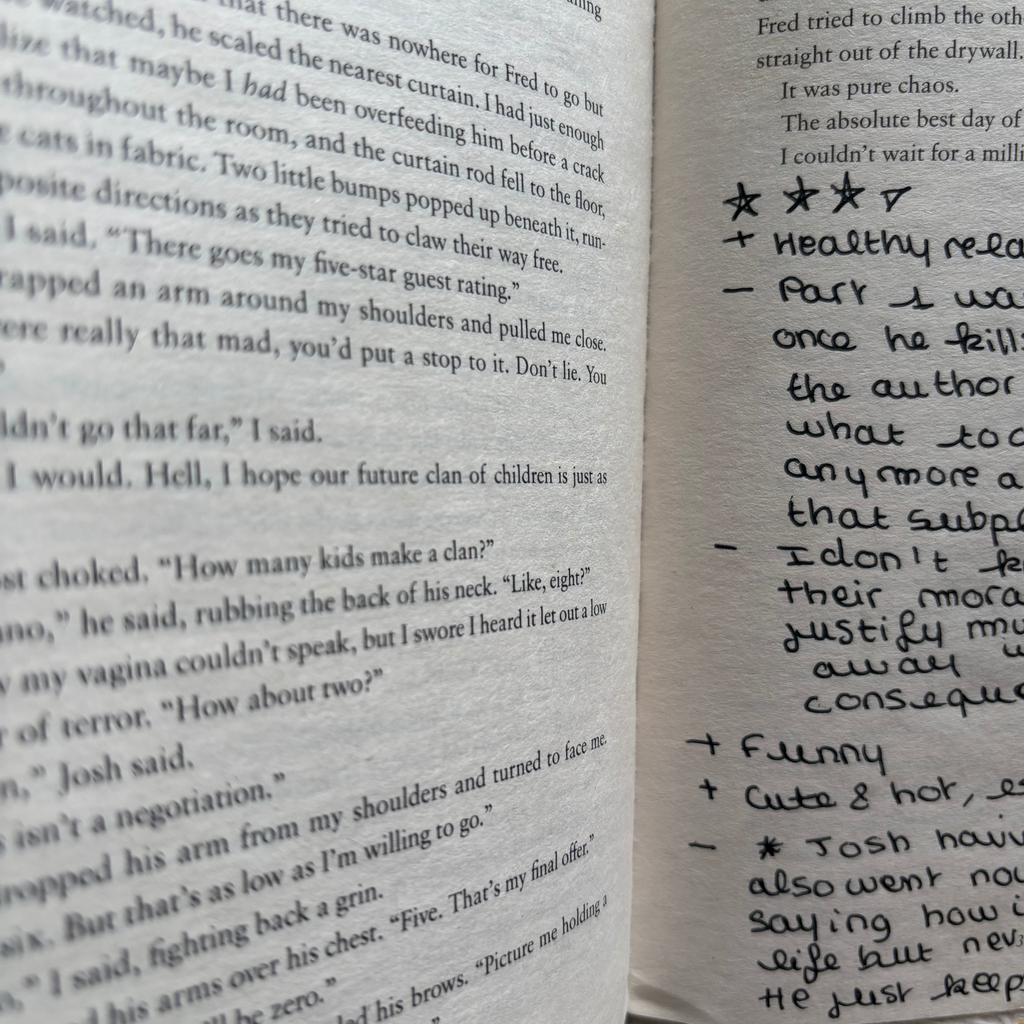 that there was nowhere for Fred to go but
watched, he scaled the nearest curtain. I had just enough
that maybe I had been overfeeding him before a crack
throughout the room, and the curtain rod fell to the floor,
cats in fabric. Two little bumps popped up beneath it, run-
posite directions as they tried to claw their way free.
I said. “There goes my five-star guest rating.”
rapped an arm around my shoulders and pulled me close.
ere really that mad, you’d put a stop to it. Don’t lie. You
ldn’t go that far,” I said.
I would. Hell, I hope our future clan of children is just as
st choked. “How many kids make a clan?”
nno,” he said, rubbing the back of his neck. “Like, eight?”
my vagina couldn’t speak, but I swore I heard it let out a low
of terror. “How about two?”
n,” Josh said.
isn’t a negotiation.”
dropped his arm from my shoulders and turned to face me.
six. But that’s as low as I’m willing to go.”
I said, fighting back a grin.
d his arms over his chest. “Five. That’s my final offer.”
ll be zero.”
ded his brows. “Picture me holding a
Fred tried to climb the oth
straight out of the drywall.
It was pure chaos.
The absolute best day of
I couldn’t wait for a milli
+ Healthy rela
- Part 1 wa
once he kills
the author
what to d
anymore a
that subpl
- I don't k
their mora
justify mu
away w
consequ
+ Funny
+ Cute & hot, es
- * Josh havi
also went no
saying how i
life but nev
He just keep